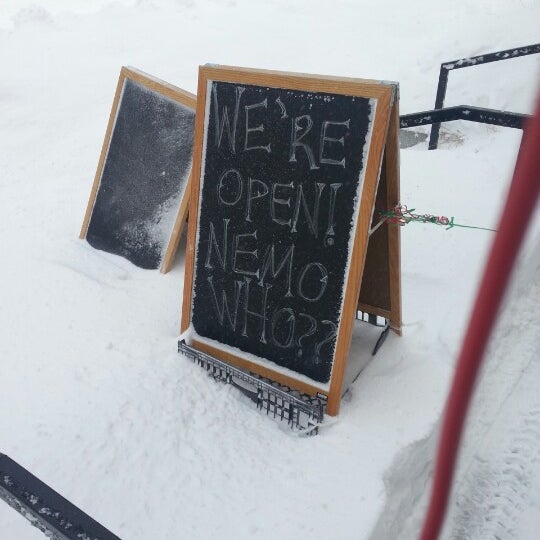 WE'RE
OPEN!
NEMO
WHO??